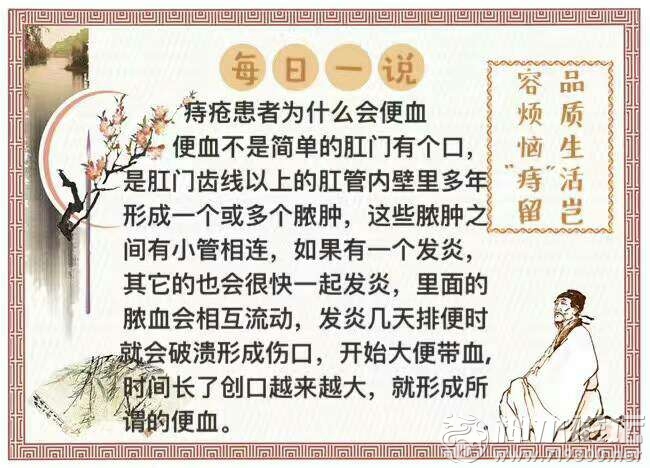 每日一说
品质生活岂
容烦恼"痔"留
痔疮患者为什么会便血
便血不是简单的肛门有个口，
是肛门齿线以上的肛管内壁里多年
形成一个或多个脓肿，这些脓肿之
间有小管相连，如果有一个发炎，
其它的也会很快一起发炎，里面的
脓血会相互流动，发炎几天排便时
就会破溃形成伤口，开始大便带血,
时间长了创口越来越大，就形成所
谓的便血。